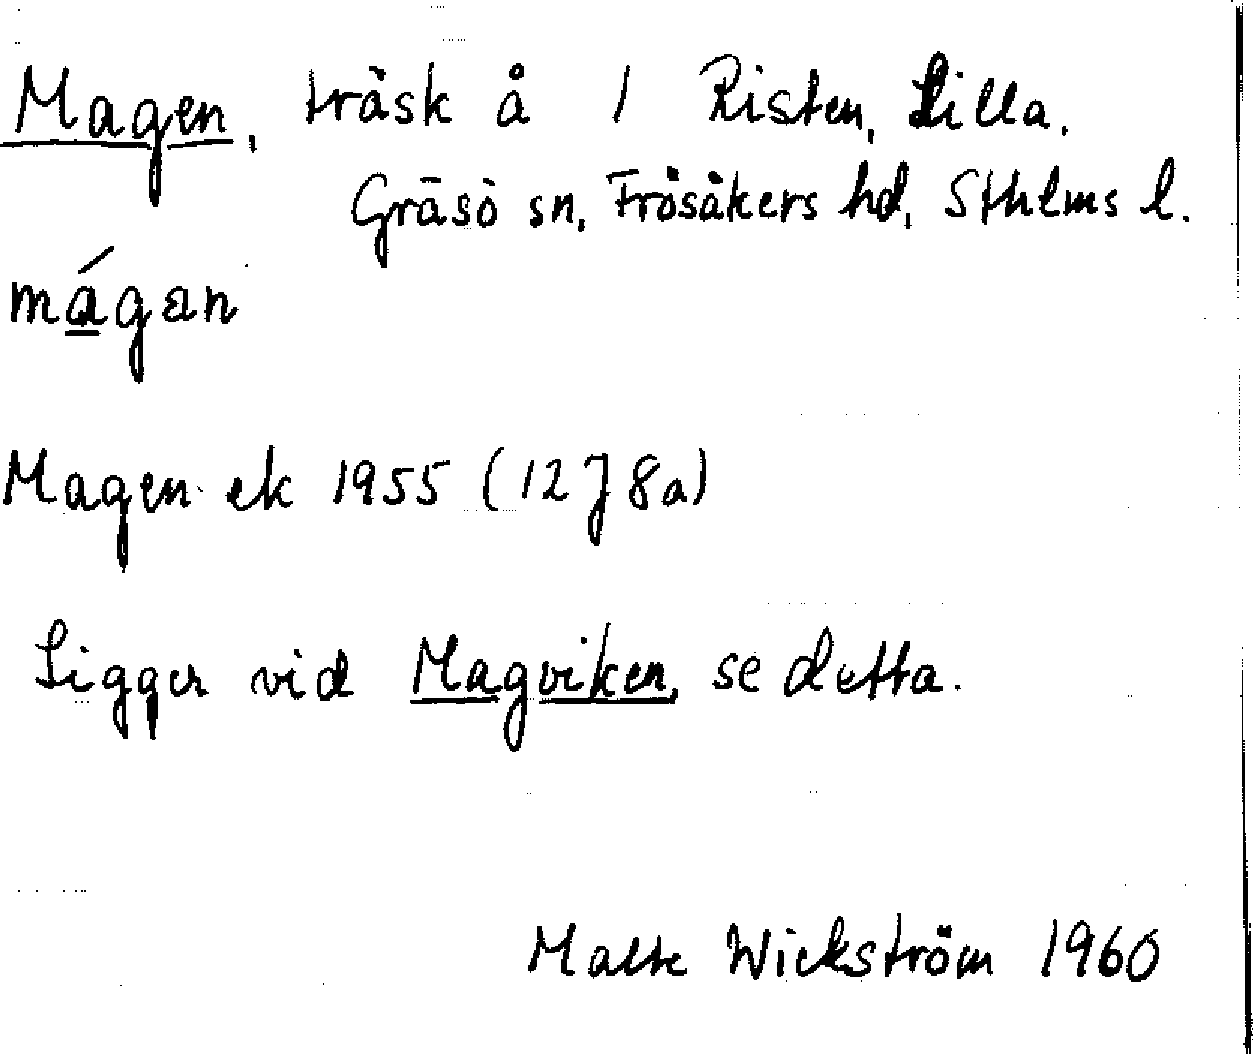 Magen, träsk å / Risten, Lilla.
Gräsö sn, Frösåkers hd, Sthlms l.
mágan
Magen ek 1955 (12J8a)
Ligger vid Magviken, se detta.
Malte Wickström 1960